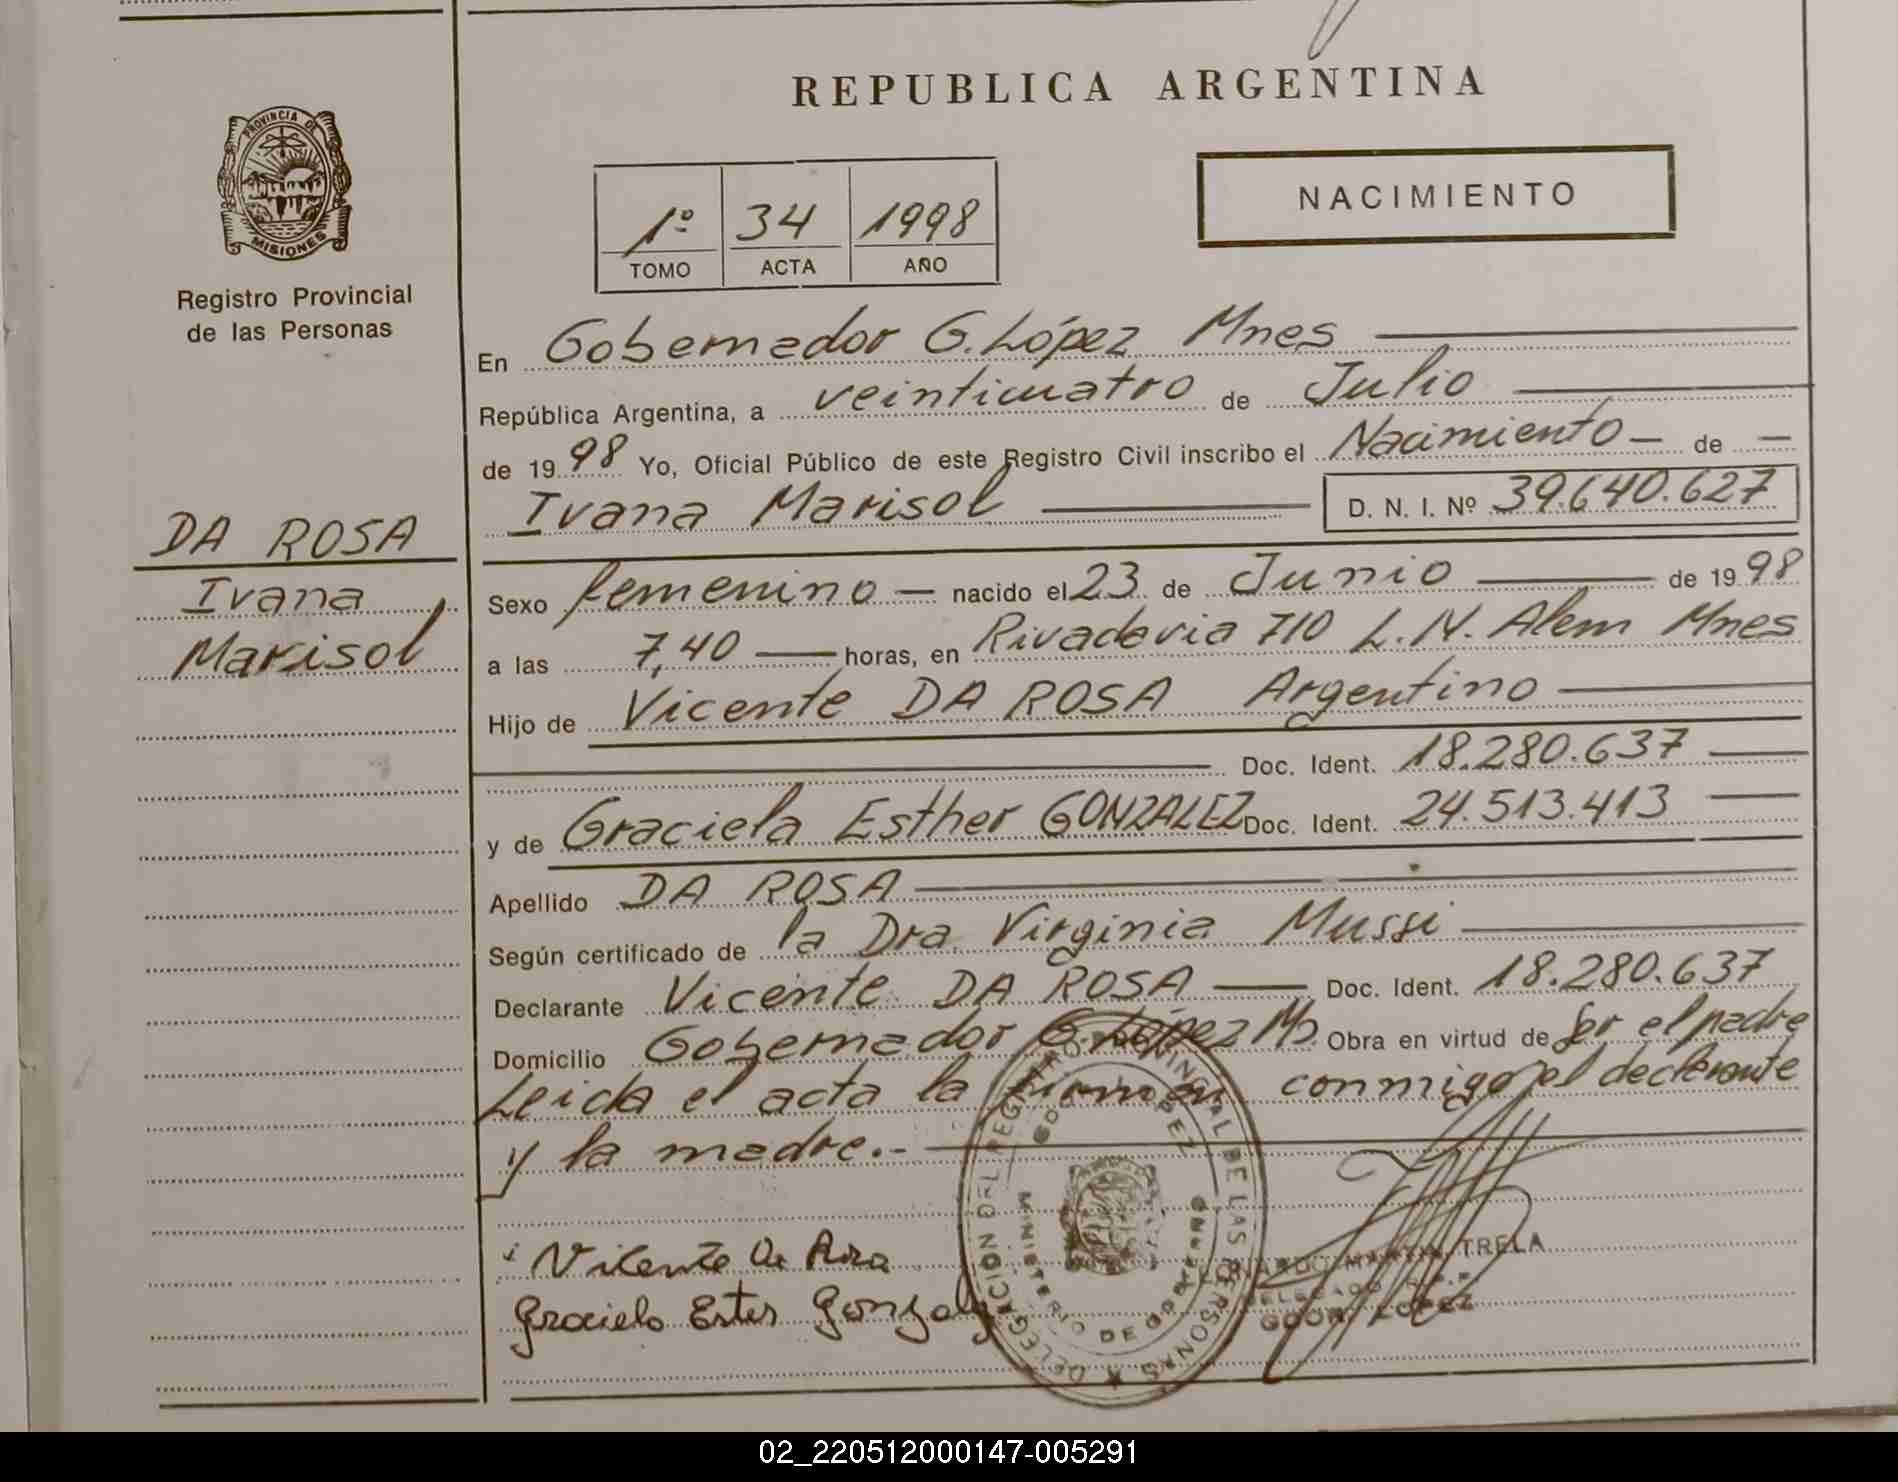 REPUBLICA ARGENTINA
PROVINCIA DE
MISIONES
Registro Provincial
de las Personas
1º 34 1998
TOMO ACTA AÑO
NACIMIENTO
DA ROSA
Ivana
Marisol
En Gobernador G. López Mnes
República Argentina, a veinticuatro de Julio
de 1998 Yo, Oficial Público de este Registro Civil inscribo el Nacimiento — de —
Ivana Marisol D. N. I. Nº 39.640.627
Sexo femenino — nacido el 23 de Junio de 1998
a las 7,40 horas, en Rivadavia 710 L. N. Alem Mnes
Hijo de Vicente DA ROSA Argentino
Doc. Ident. 18.280.637
y de Graciela Esther GONZALEZ Doc. Ident. 24.513.413
Apellido DA ROSA
Según certificado de la Dra. Virginia Mussi
Declarante Vicente DA ROSA — Doc. Ident. 18.280.637
Domicilio Gobernador G. López Ms Obra en virtud de Ser el padre
Leida el acta la firman conmigo el declarante
y la madre.-
Vicente Da Rosa
Graciela Ester Gonzalez
DELEGACION DEL REGISTRO PROVINCIAL DE LAS PERSONAS
MINISTERIO DE GOBIERNO
TRELA
GDOR. LOPEZ
02_220512000147-005291